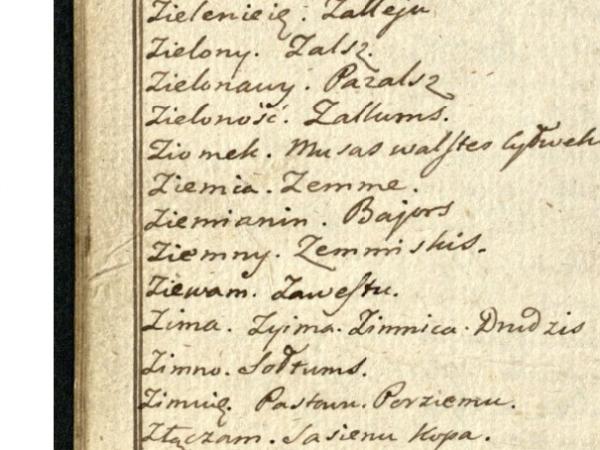 Zielenieię. Zalleju
Zielony. Zalsz.
Zielonawy. Pazalsz
Zieloność. Zallums.
Ziomek. Musas walſtes
Ziemia. Zemme.
Ziemianin. Bajors
Ziemny. Zemmiskis.
Ziewam. Zaweſtu.
Zima. Zyima. Zimnica. Drudzis
Zimno. Soltums.
Zimuię. Pastawu. Perziemu.
Złączam. Sasienu Kopa.